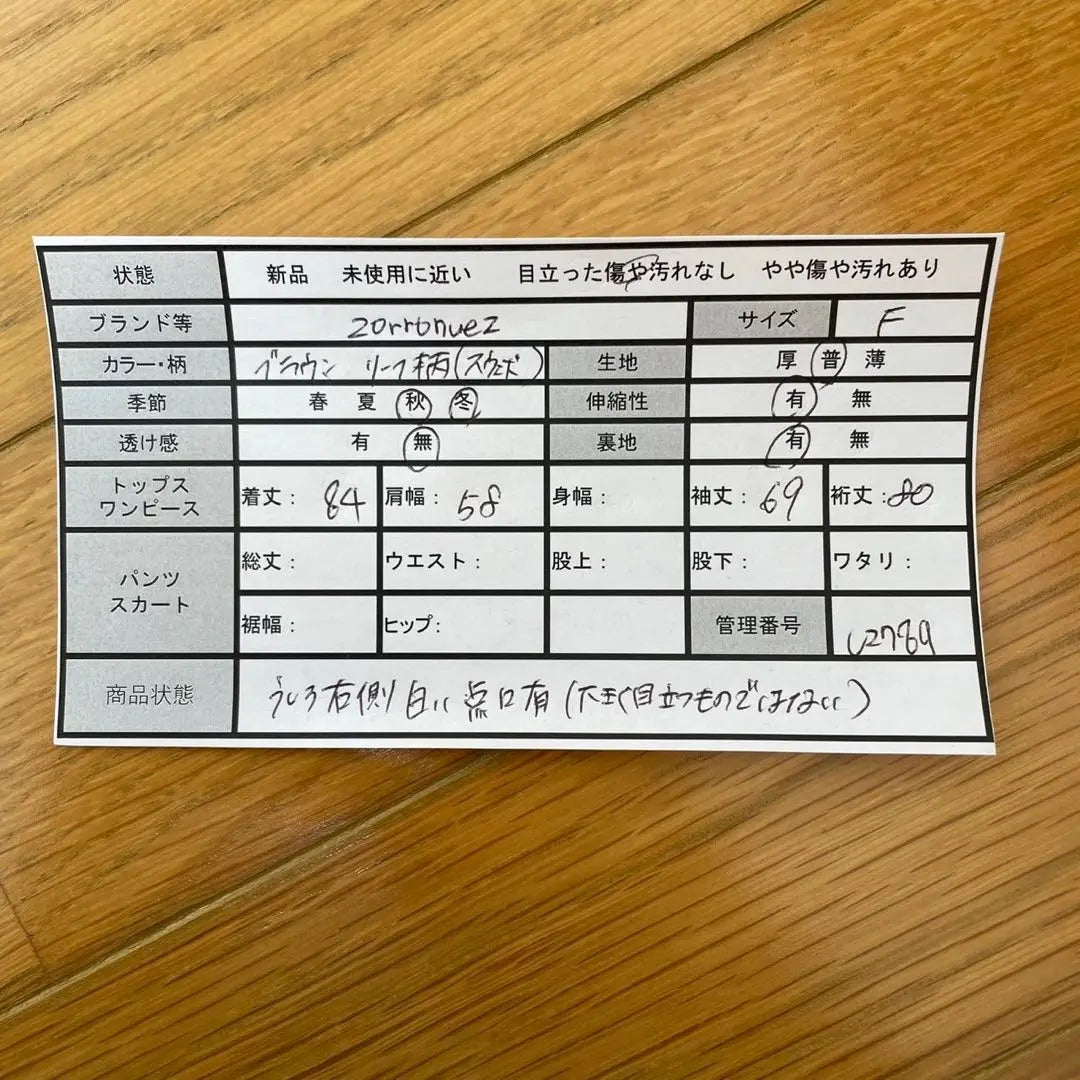 状態 新品 未使用に近い 目立った傷や汚れなし やや傷や汚れあり
ブランド等 zorronuez サイズ F
カラー・柄 ブラウン リーフ柄(スウェード) 生地 厚 普 薄
季節 春 夏 秋 冬 伸縮性 有 無
透け感 有 無 裏地 有 無
トップス
ワンピース
着丈: 84 肩幅: 58 身幅: 袖丈: 69 裄丈: 80
パンツ
スカート
総丈: ウエスト: 股上: 股下: ワタリ:
裾幅: ヒップ: 管理番号
商品状態 うしろ右側 白い点口有 目立つものではない)